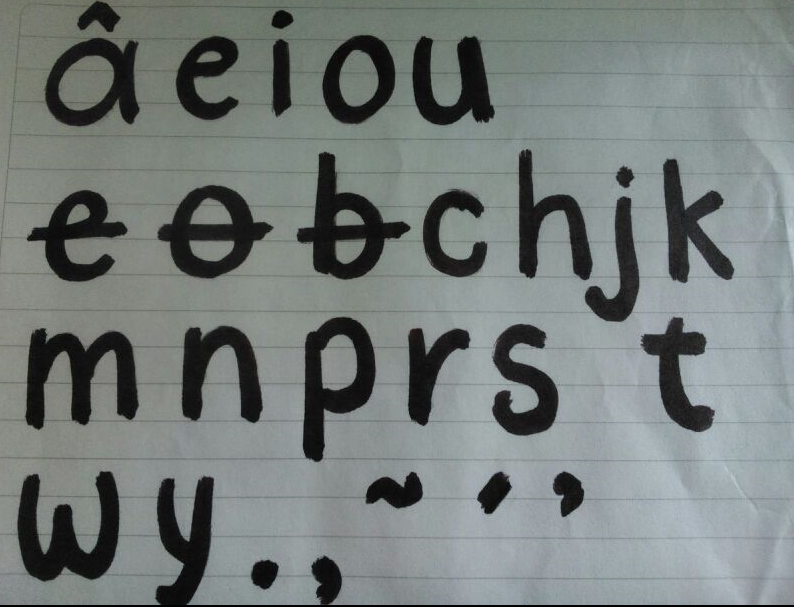 â e i o u
e̶ o̶ b̶ c h j k
m n p r s t
w y . , ~ ´ ’